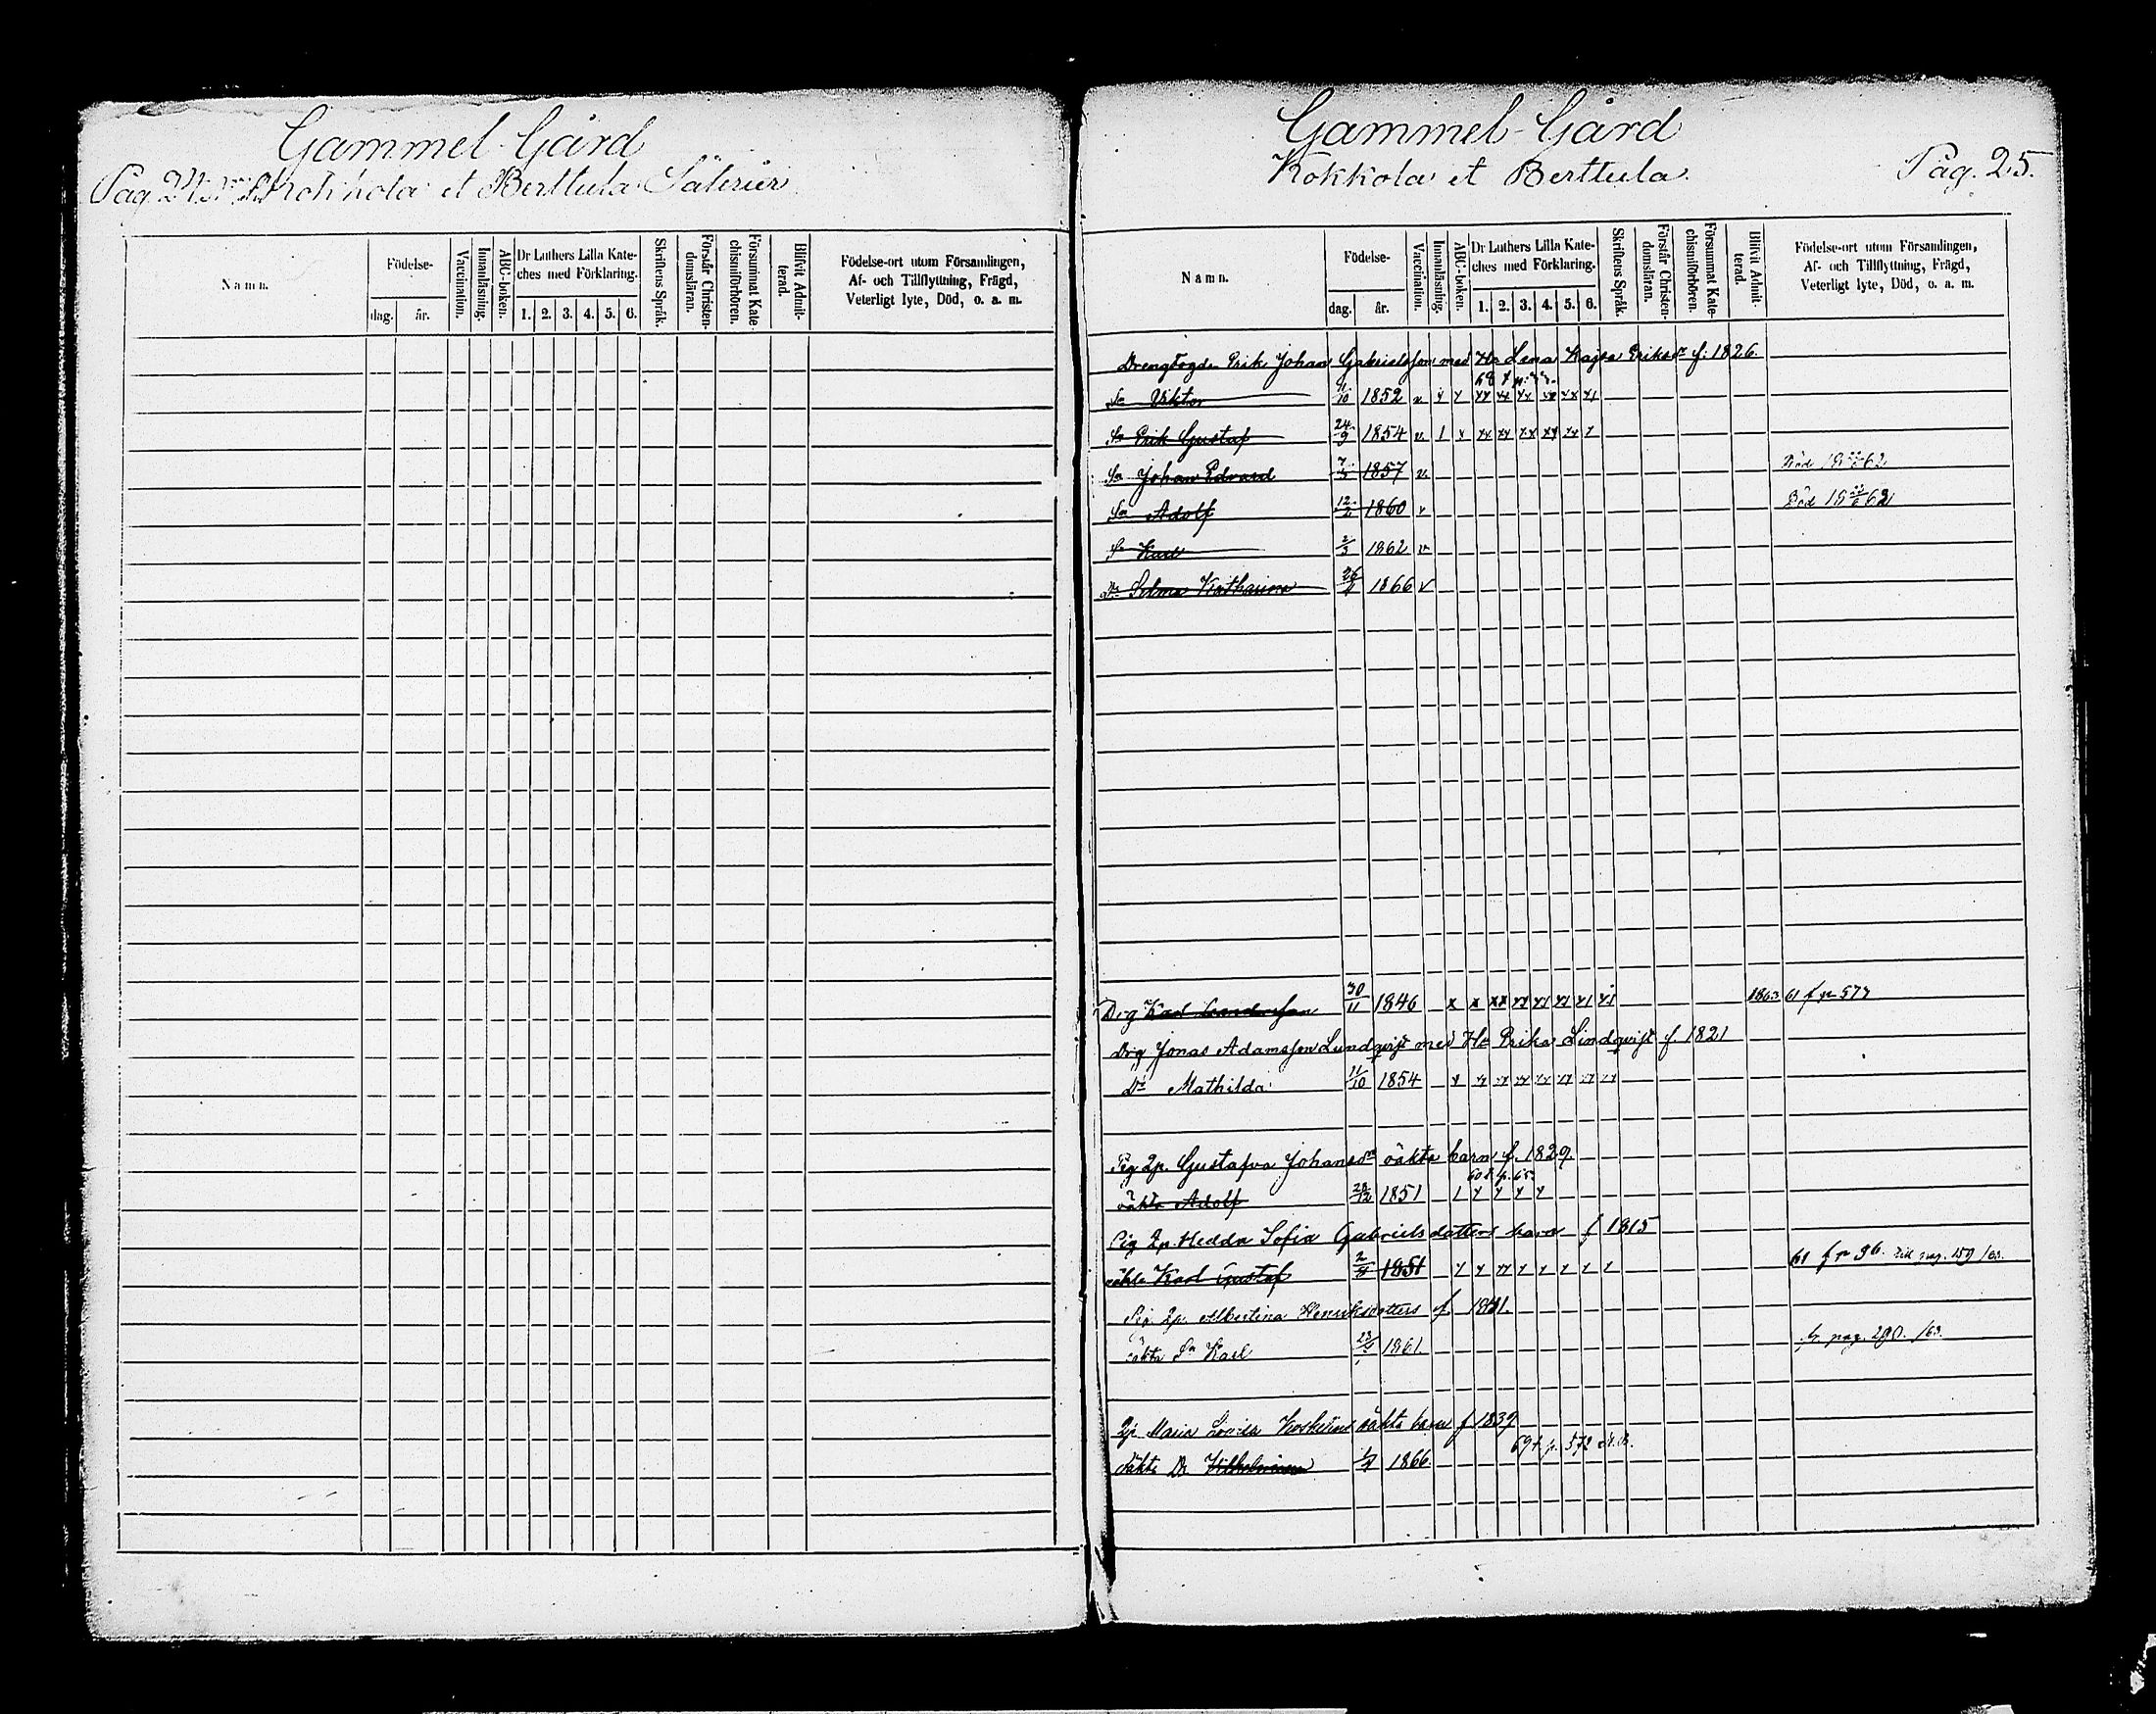 Gammel-Gård
Pag. 24. Kokkola et Berttula Säterier.
Namn.
Födelse-
dag.
år.
Vaccination.
Innanläsning.
ABC-boken.
Dr Luthers Lilla Kate-
ches med Förklaring.
1. 2. 3. 4. 5. 6.
Skriftens Språk.
Förstår Christen-
domsläran.
Försummat Kate-
chismiförhören.
Blifvit Admit-
terad.
Födelse-ort utom Församlingen,
Af- och Tillflyttning, Frägd,
Veterligt lyte, Död, o. a. m.
Gammel-Gård
Kokkola et Berttula.
Pag. 25.
Namn.
Födelse-
dag.
år.
Vaccination.
Innanläsning.
ABC-boken.
Dr Luthers Lilla Kate-
ches med Förklaring.
1. 2. 3. 4. 5. 6.
Skriftens Språk.
Förstår Christen-
domsläran.
Försummat Kate-
chismiförhören.
Blifvit Admit-
terad.
Födelse-ort utom Församlingen,
Af- och Tillflyttning, Frägd,
Veterligt lyte, Död, o. a. m.
Drengfogden Erik Johan Gabrielsson med Hu Lena Kajsa Eriksdr f. 1826.
Sn Viktor 1852 v
Sn Erik Gustaf 24/9 1854 v.
Sn Johan Edvard 1857 v. Död
Sn Adolf 12/2 1860 v Död
Sn Karl 2/3 1862 v
Dr Selma Katharina 1866 v
Drg Karl 30/11 1846 1863 61 f p 577
Drg Jonas Adamsson Lundqvist med Hu Erika Lindqvist f. 1821
Dr Mathilda 11/10 1854
Pig Ip. Gustafva Johansdr oäkta barn f. 1829.
oäkta Adolf 1851
Pig Ip. Hedda Sofia Gabrielsdotters barn f 1815
oäkta Karl Gustaf 1851 61 f p 36. till pag. 159 /63.
Pig. Ip. Albertina Henriksdotters f. 1841.
oäkta Sn Karl 1861. fr. pag. 290. /63.
Ip Maria Lovisa oäkta barn f 1839
69 t. p. 572
oäkta Dr Wilhelmina 1866.